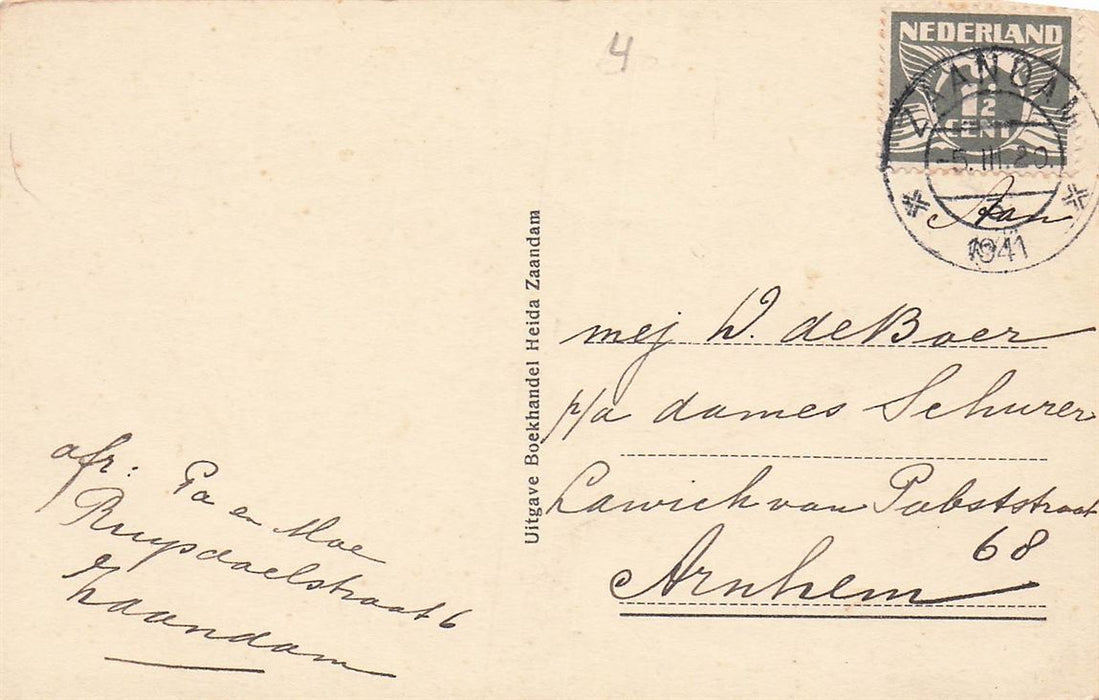 4
NEDERLAND
1½
CENT
ZAANDAM
-5.III.20.
1941
Aan
mej W. de Boer
p/a dames Schurer
Lawick van Pabststraat
68
Arnhem
Uitgave Boekhandel Heida Zaandam
afz: Pa en Moe
Ruysdaelstraat 6
Zaandam